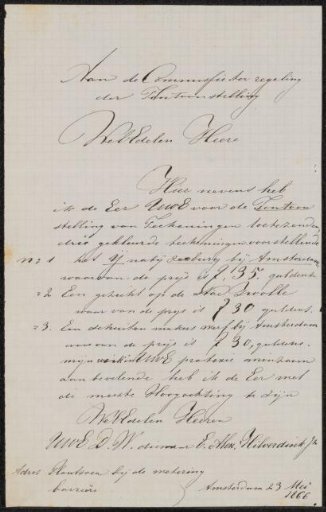 Aan de Commissie ter regeling
der Tentoonstelling
WelEdelen Heere
Hier nevens heb
ik de Eer UWE voor de Tentoon
stelling van Teekeningen toetezenden
drie gekleurde teekeningen voorstellende
no 1 het Y nabij Zeeburg bij Amsterdam
waarvan de prijs is f 35 guldens
" 2. Een gezicht op de Zwolle
waar van de prijs is f 30 guldens.
" 3. Een bij Amsterdam
van de prijs is f 30, guldens.
mijn UWE
aanbevelende heb ik de Eer met
de meeste Hoogachting te zijn
WelEdelen Heeren
UWE. D. W. dienaar E. Alex. Hilverdink Jr
Adres bij de
barrière
Amsterdam 23 Mei
1866